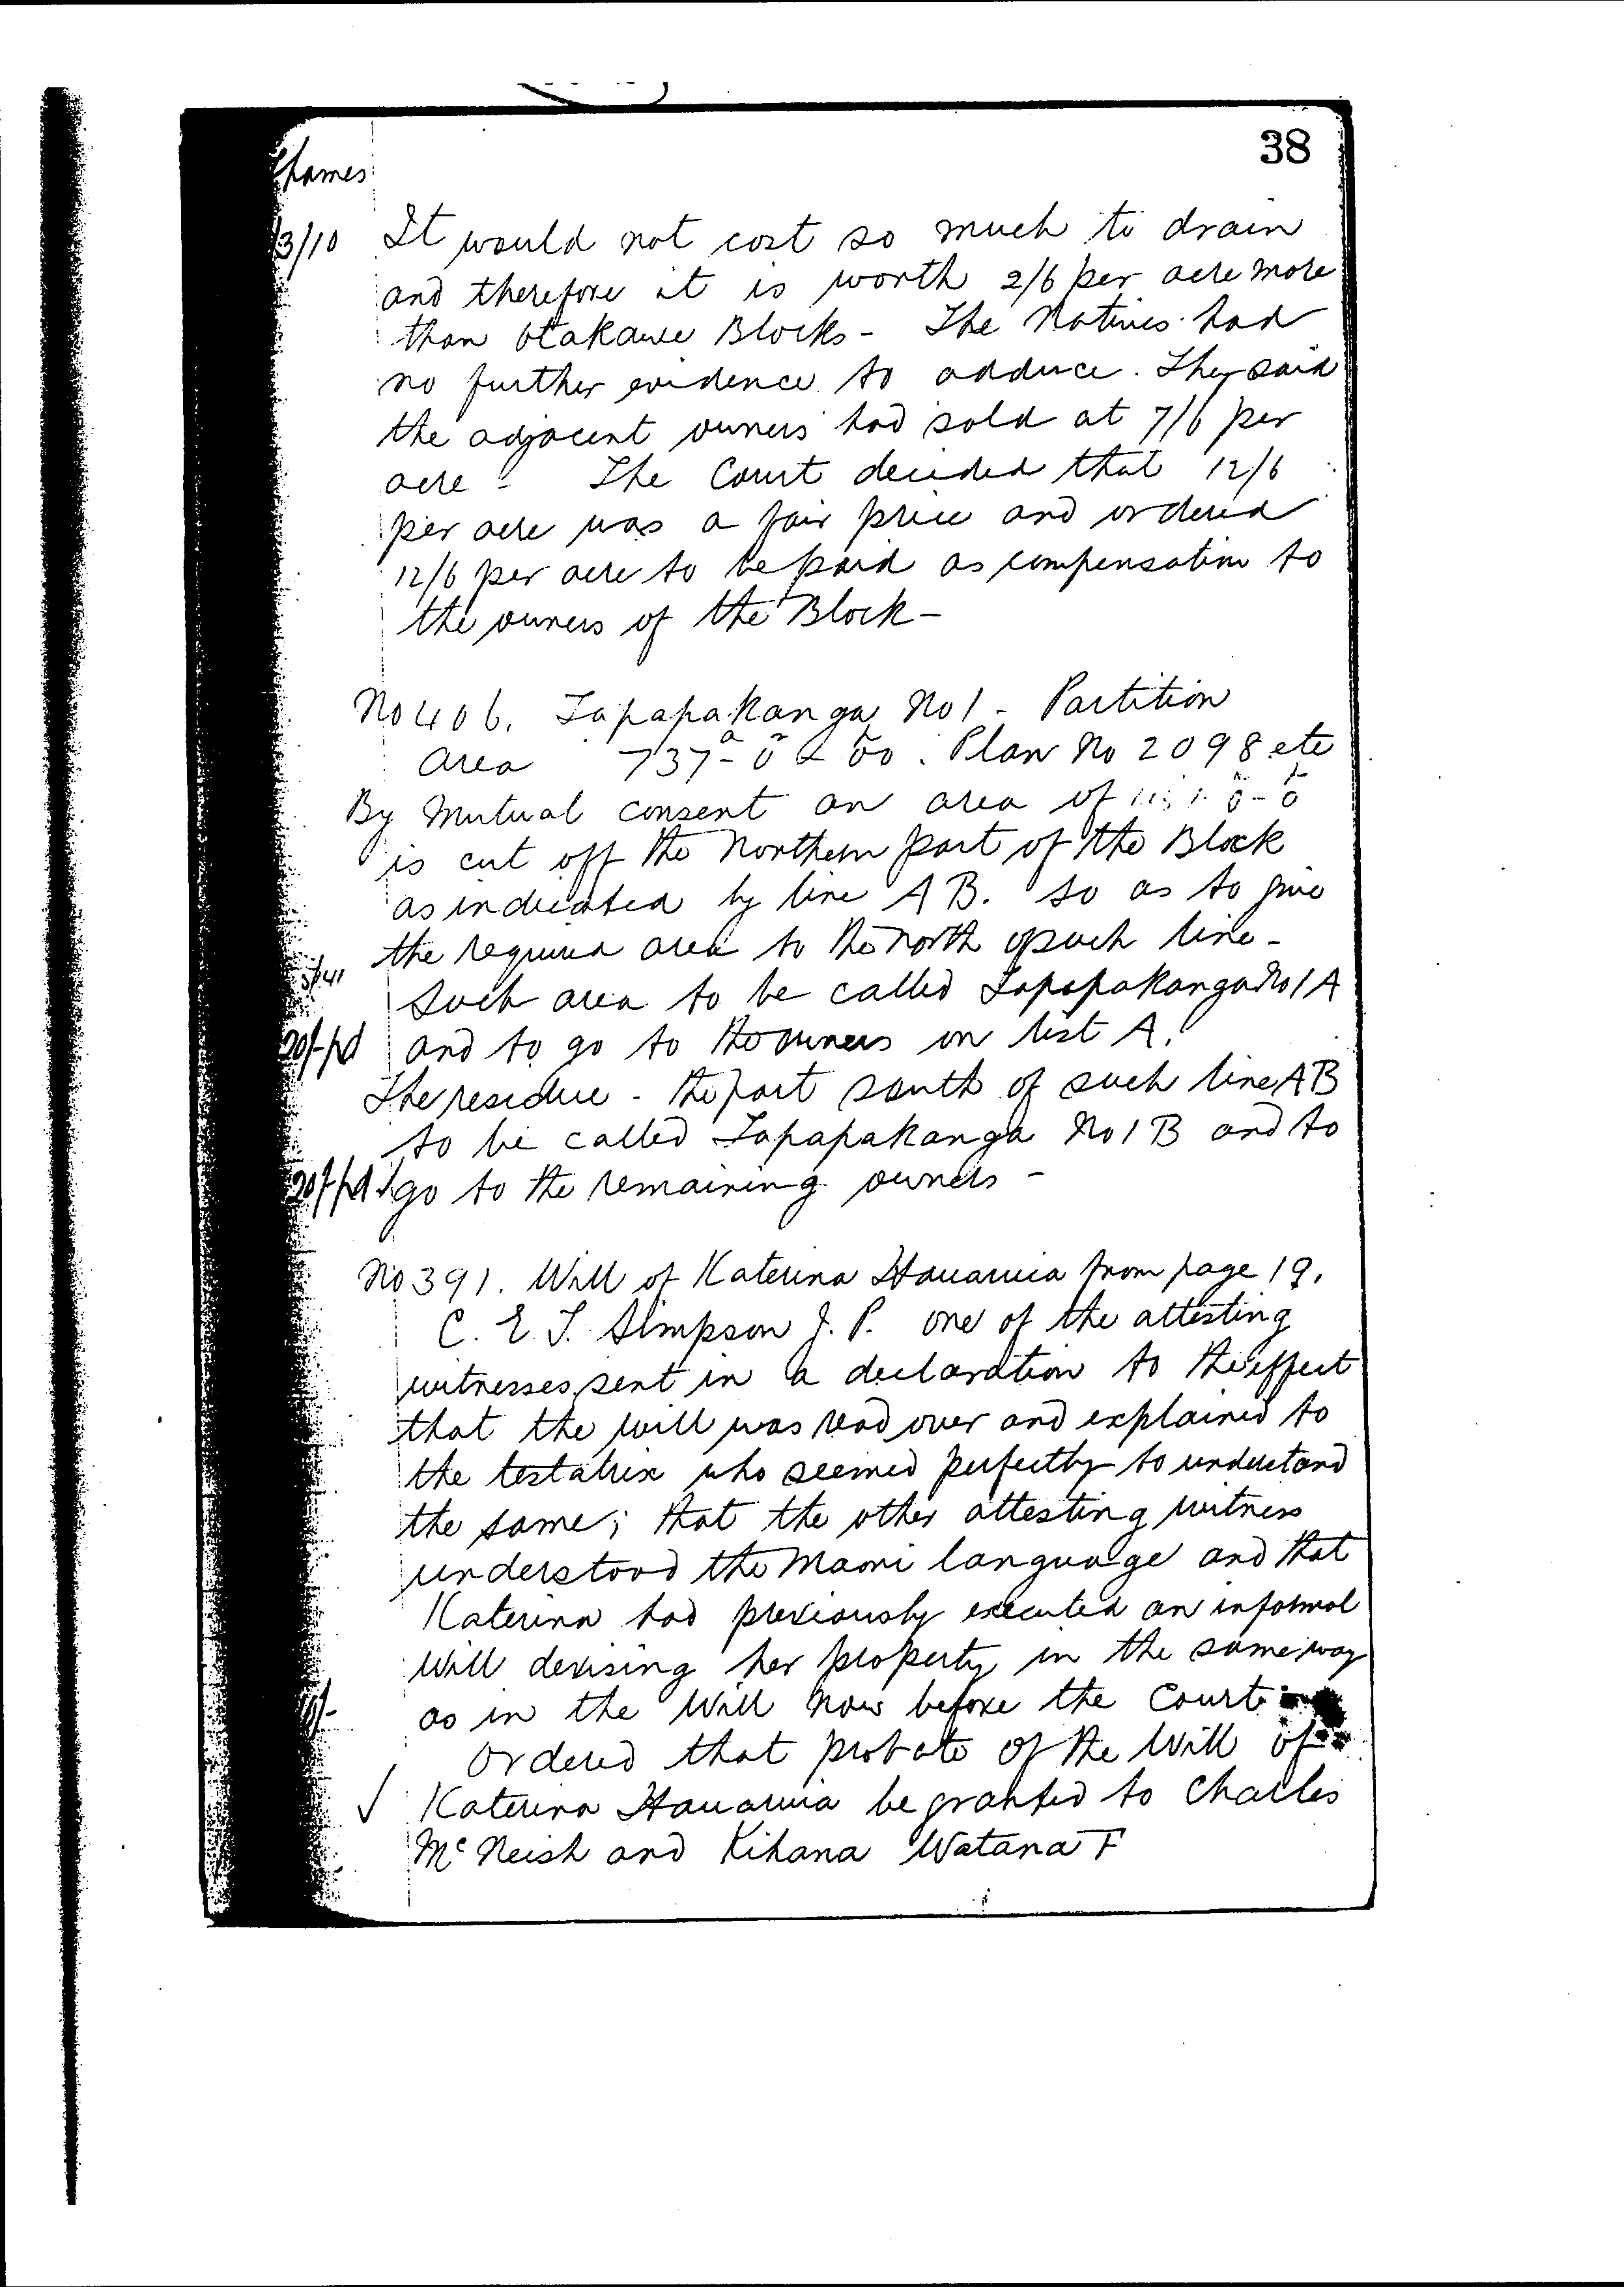 38
Thames
3/10 It would not cost so much to drain
and therefore it is worth 2/6 per acre more
than Otakawe Blocks - The Natives had
no further evidence to adduce. They said
the adjacent owners had sold at 7/6 per
acre - The Court decided that 12/6
per acre was a fair price and ordered
12/6 per acre to be paid as compensation to
the owners of the Block -
No 406. Tapapakanga No 1 - Partition
Area 737 - 0 - 00. Plan No 2098 etc
By Mutual consent an area of
is cut off the Northern part of the Block
as indicated by line A B. so as to give
the required area to the north of such line -
Such area to be called Tapapakanga No 1 A
20/- pd and to go to the owners in list A.
The residue - the part south of such line AB
to be called Tapapakanga No 1 B and to
20/- pd go to the remaining owners -
No 391. Will of Katerina Hauauru from page 19.
C. E. T. Simpson J. P. one of the attesting
witnesses, sent in a declaration to the effect
that the will was read over and explained to
the testatrix who seemed perfectly to understand
the same; that the other attesting witness
understood the Maori language and that
Katerina had previously executed an informal
Will devising her property in the same way
as in the Will now before the Court
Ordered that probate of the Will of
✓ Katerina be granted to Charles
McNeish and Kihana Watana F